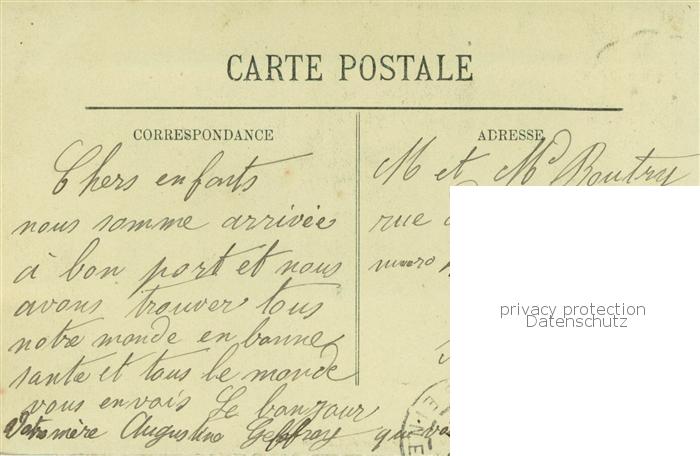 CARTE POSTALE
CORRESPONDANCE
ADRESSE
Chers enfants
nous somme arrivée
à bon port et nous
avons trouver tous
notre monde en bonne
sante et tous le monde
vous envois Le bonjour
Votre mère Augustine Geffroy qui
M et Md Boutry
rue
numero
privacy protection
Datenschutz